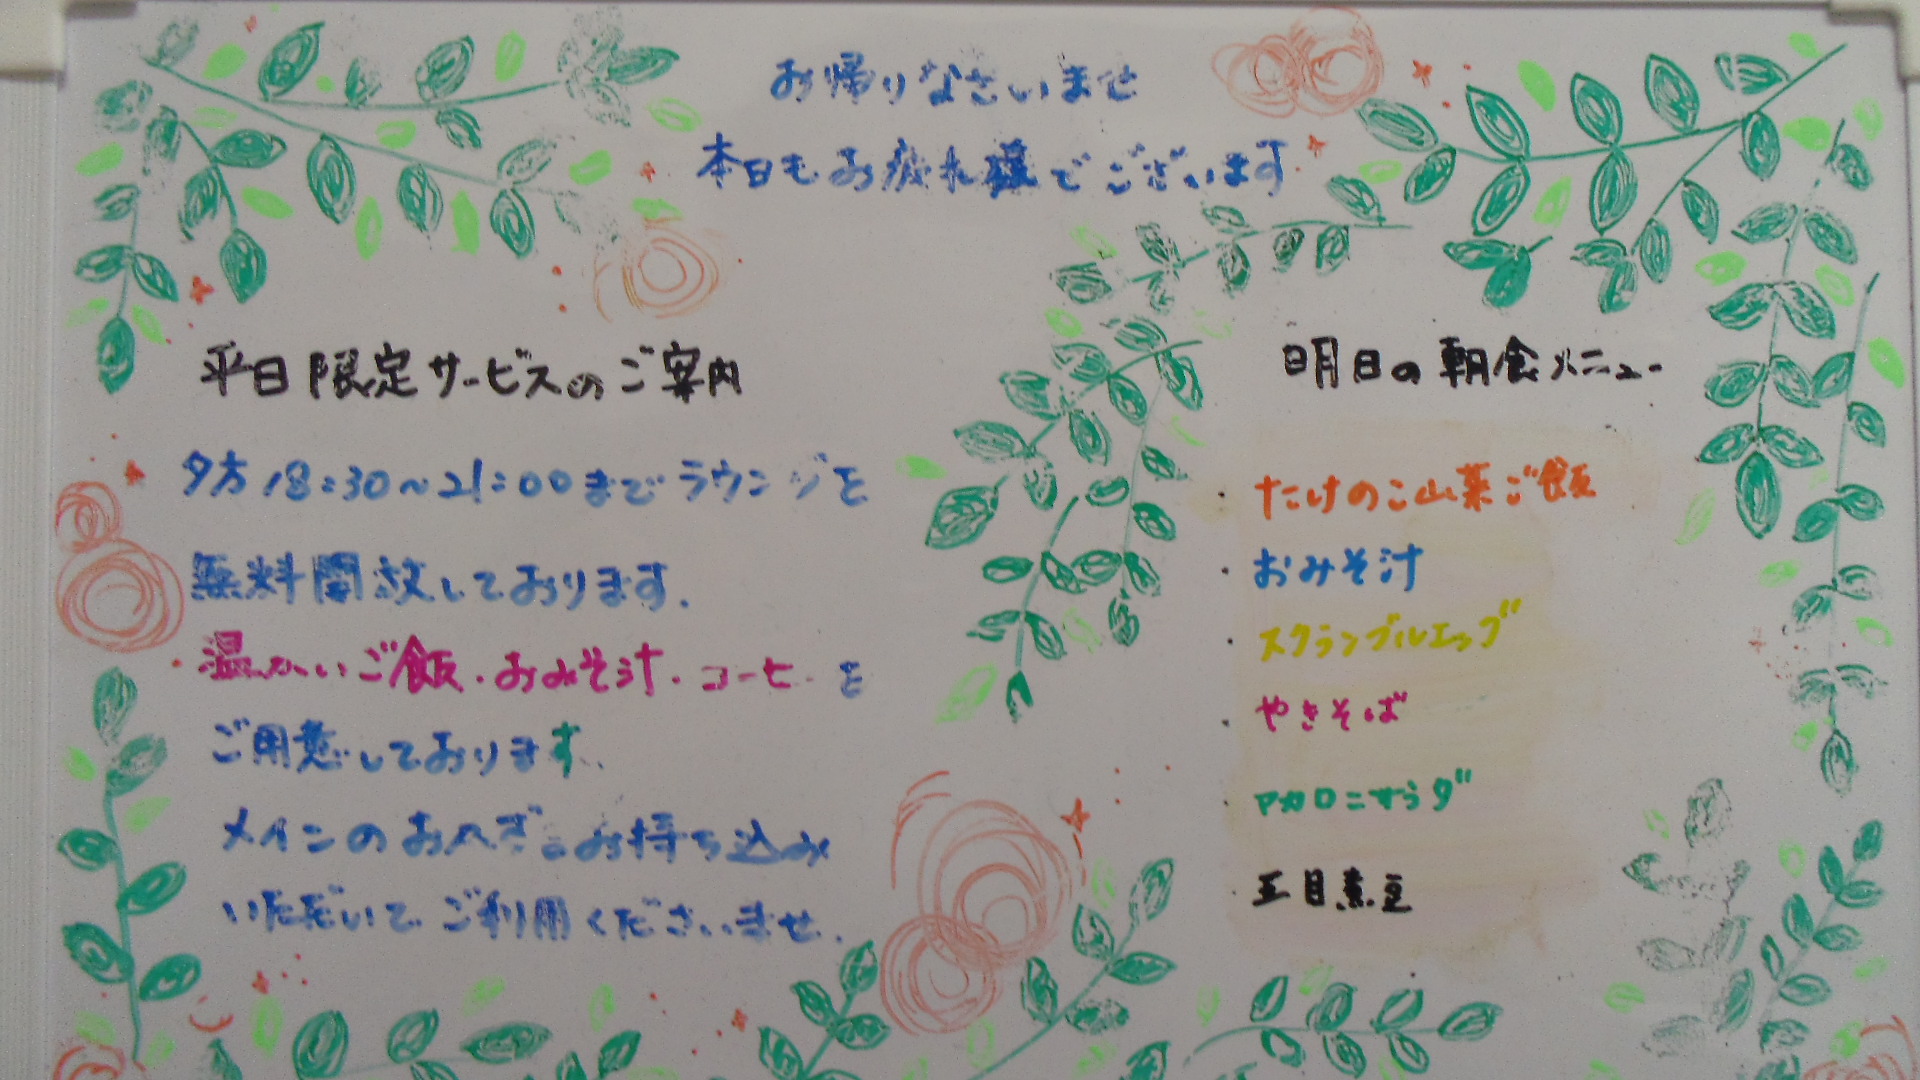 お帰りなさいませ
本日もお疲れ様でございます
平日限定サービスのご案内
夕方18:30~21:00までラウンジを
無料開放しております.
温かいご飯・おみそ汁・コーヒーを
ご用意しております.
メインのおかずをお持ち込み
いただいてご利用くださいませ.
明日の朝食メニュー
・たけのこ山菜ご飯
・おみそ汁
・スクランブルエッグ
・やきそば
・マカロニサラダ
・五目煮豆